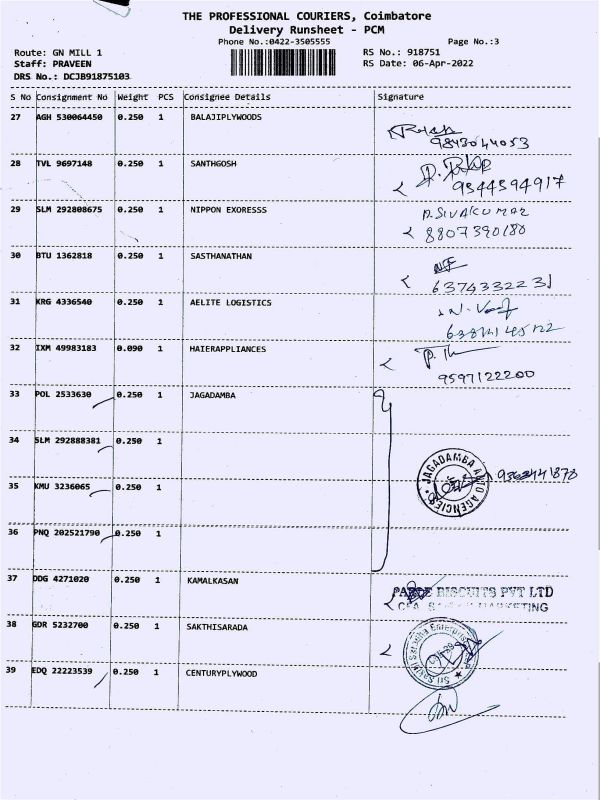 THE PROFESSIONAL COURIERS, Coimbatore
Delivery Runsheet - PCM
Phone No.:0422-3505555 Page No.:3
Route: GN MILL 1 RS No.: 918751
Staff: PRAVEEN RS Date: 06-Apr-2022
DRS No.: DCJB91875103
S No Consignment No Weight PCS Consignee Details Signature
27 AGH 530064450 0.250 1 BALAJIPLYWOODS
9843044053
28 TVL 9697148 0.250 1 SANTHGOSH
9344394917
29 SLM 292808675 0.250 1 NIPPON EXORESSS P.SIVAKUMAR
8807390180
30 BTU 1362818 0.250 1 SASTHANATHAN
6374332231
31 KRG 4336540 0.250 1 AELITE LOGISTICS
32 IXM 49983183 0.090 1 HAIERAPPLIANCES
9597122200
33 POL 2533630 0.250 1 JAGADAMBA
34 SLM 292888381 0.250 1
JAGADAMBA AUTO AGENCIES
35 KMU 3236065 0.250 1
36 PNQ 202521790 0.250 1
37 DDG 4271020 0.250 1 KAMALKASAN
PARLE BISCUITS PVT LTD
MARKETING
38 GDR 5232700 0.250 1 SAKTHISARADA
39 EDQ 22223539 0.250 1 CENTURYPLYWOOD